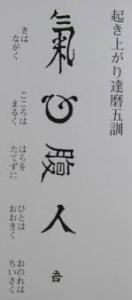 起き上がり達磨五訓
氣
心
腹
人
吾
きは
ながく
こころは
まるく
はらを
たてずに
ひとは
おおきく
おのれは
ちいさく